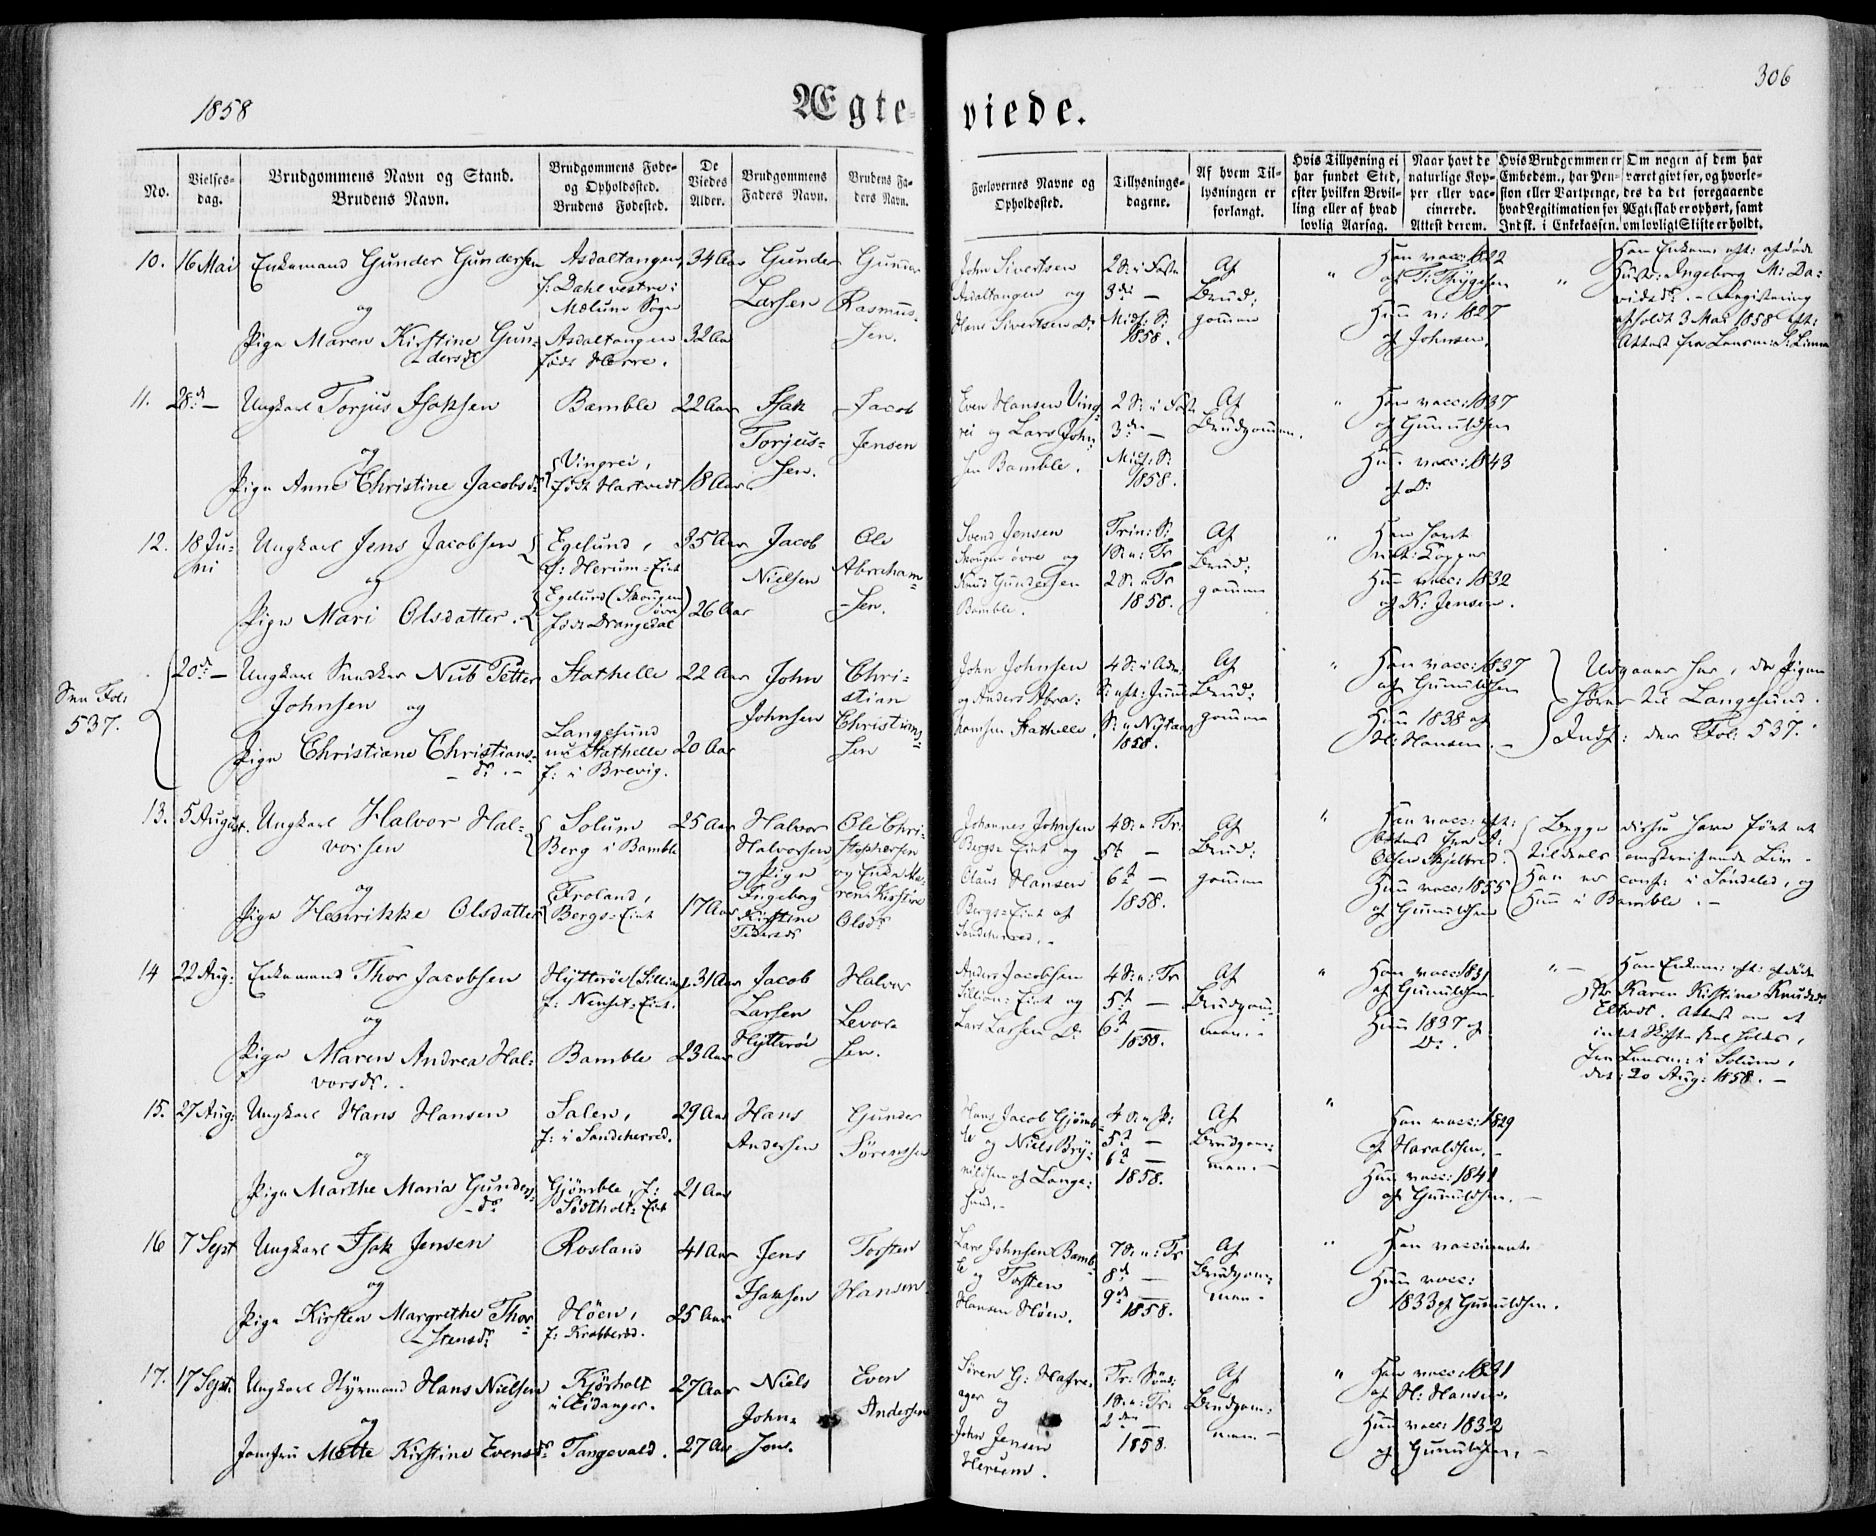 306
1858
Ægte- viede.
No.
Vielses-
dag.
Brudgommens Navn og Stand.
Brudens Navn.
Brudgommens Føde-
og Opholdssted.
Brudens Fødested.
De
Viedes
Alder.
Brudgommens
Faders Navn.
Brudens Fa-
ders Navn.
Forlovernes Navne og
Opholdssted.
Tillysnings-
dagene.
Af hvem Til-
lysningen er
forlangt.
Hvis Tillysning ei
har fundet Sted,
efter hvilken Bevil-
ling eller af hvad
lovlig Aarsag.
Naar havt de
naturlige Kop-
per eller vac-
cinerede.
Attest derom.
Hvis Brudgommen er
Embedsm., har Pen-
sion eller Vartpenge,
hvad Legitimation for
Indsk. i Enkekassen.
Om nogen af dem har
været gift før, og hvorle-
des da det foregaaende
Ægteskab er ophørt, samt
om lovligt Skifte er holdt.
10. 16 Mai
Enkemand Gunder Gundersen
og
Pige Maren Kirstine Gun-
dersd:
Asdaltangen,
f: Dahl vestre i
Mælum Sogn
Asdaltangen
født Herre.
34 Aar
32 Aar
Gunder
Larsen
Gunner
Rasmus-
sen.
John Sivertsen
Asdaltangen og
Hans Sivertsen Do
2 S: i Faste
3die —
Midf: S:
1858.
Af
Brud:
gommen
"
Han vacc: 1822
af T: Thygesen
Hun v: 1827
af Johnsen.
"
Han Enkem: eft: afdøde
Hustr: Ingeborg M: Da-
vidsd:. - Registrering
afholdt 3 Mai 1858 eft:
Attest fra Lensm: S: Linna
11. 28de —
Ungkarl Torjus Isaksen
og
Pige Anne Christine Jacobsd:
Bamble
Vingrei,
født Hartvedt
22 Aar
18 Aar
Isak
Torjus-
sen.
Jacob
Jensen
Even Hansen Ving-
rei og Lars John-
sen Bamble.
2 S: i Faste
3die —
Midf: S:
1858.
Af
Brudgommen.
"
Han vacc: 1837
af Gunnuldsen
Hun vacc: 1843
af Do
12. 18 Ju-
ni
Ungkarl Jens Jacobsen
og
Pige Mari Olsdatter.
Egelund,
f: Herum-Eiet
Egelund (Skougen
øvre)
født Drangedal
35 Aar
26 Aar
Jacob
Nielsen
Ole
Abraham-
sen.
Svend Jensen
Skougen øvre og
Knud Gundersen
Bamble.
Trin: S:
1 S: e: Tr
2 S: e Tr
1858.
Af
Brud:
gommen
"
Han havt
nat: Kopper
Hun vacc: 1832
af K: Jensen.
See Fol:
537.
20de —
Ungkarl Snedker Nub Petter
Johnsen og
Pige Christiane Christians-
d: . -
Stathelle
Langesund
nu Stathelle
f: i Brevig.
22 Aar
20 Aar
John
Johnsen
Chri-
stian
Christian-
sen
John Johnsen
og Anders Abra-
hamsen Stathelle.
1858.
Af
Brud:
gommen
"
Han vacc: 1837
af Gunnuldsen
Hun 1838 af
Hansen. -
Udgaaer her, da Pigen
hører til Langesund.
Indf: der Fol: 537.
13. 5 August.
Ungkarl Halvor Hal-
vorsen
og
Pige Henrikke Olsdatter
Solum
Berg i Bamble
Froland,
Bergs-Eiet
25 Aar
17 Aar
Halvor
Halvorsen
og Pige
Ingeborg
Kirstine
Pedersd:
Ole Chri-
stophersen
og Enke Ka-
ren Kirstine
Olsd:
Johannes Johnsen
Bergs-Eiet og
Claus Hansen
Bergs-Eiet af
Sandeherred. -
4 S: e: Tr:
5te —
6te —
1858.
Af
Brud:
gommen
"
Han vacc: eft:
Attest fra A:
Olsen Skjelbred.
Hun vacc: 1855
af Gunnuldsen
Begge disse have ført et
tildeels omstreifende Liv -
Han er conf: i Søndeled, og
Hun i Bamble. -
14 22 Aug:
Enkemand Thor Jacobsen
og
Pige Maren Andrea Hal-
vorsd:.
Hytterøe
f: Nenset-Eiet.
Bamble
31 Aar
23 Aar
Jacob
Larsen
Hytterøe
Halvor
Levor-
sen.
Anders Jacobsen
og
Lars Larsen Do
4 S: e: Tr
5te —
6te —
1858.
Af
Brudgom-
men. -
"
Han vacc: 1831
af Gunnuldsen.
Hun 1837 af
Do.
" —
Han Enkem: eft: afdøde
Karen Kirstine Knudsd:
Attest om at
intet Skifte skal holdes,
fra Lensm: i Solum,
dat: 20 Aug: 1858. -
15. 27 Aug:
Ungkarl Hans Hansen
og
Pige Marthe Maria Gunders-
d:
Salen,
f: i Sandeherred.
Gjømble, f:
Sødtholt-Eiet
29 Aar
21 Aar
Hans
Andersen
Gunder
Sørensen
Hans Jacob Gjømb-
le og Niels Bry-
nildsen af Lange-
sund. -
5te —
6te —
1858.
Af
Brudgom-
men. -
"
Han vacc: 1829
af Haraldsen. -
Hun vacc: 1841
af Gunnuldsen. -
16 7 Sept
Ungkarl Isak Jensen
og
Pige Kirsten Margrethe Thor-
stensd:
Rosland
Høen,
f: Krabberød.
41 Aar
25 Aar
Jens
Isaksen
Torsten
Hansen.
Lars Johnsen Bamb-
le og Torsten
Hansen Høen.
7 S: e: Tr
8de —
9de —
1858.
Af
Brudgom-
men -
"
Han vaccineret
Hun vacc:
1833 af Gunnuldsen.
17. 17 Sept:
Ungkarl Styrmand Hans Nielsen
og
Jomfru Mette Kirstine Evensd:
Kjørholt
i Eidanger.
Tangevald.
27 Aar
27 Aar
Niels
John-
sen.
Even
Andersen
Søren G: Hafre-
ager og
John Jensen
Herum.
Tr: Sønd:
1 S: e: Tr:
2den —
1858.
Af
Brudgom-
men -
"
Han vacc: 1831
af H: Hansen.
Hun vacc: 1832
af Gunnuldsen. -